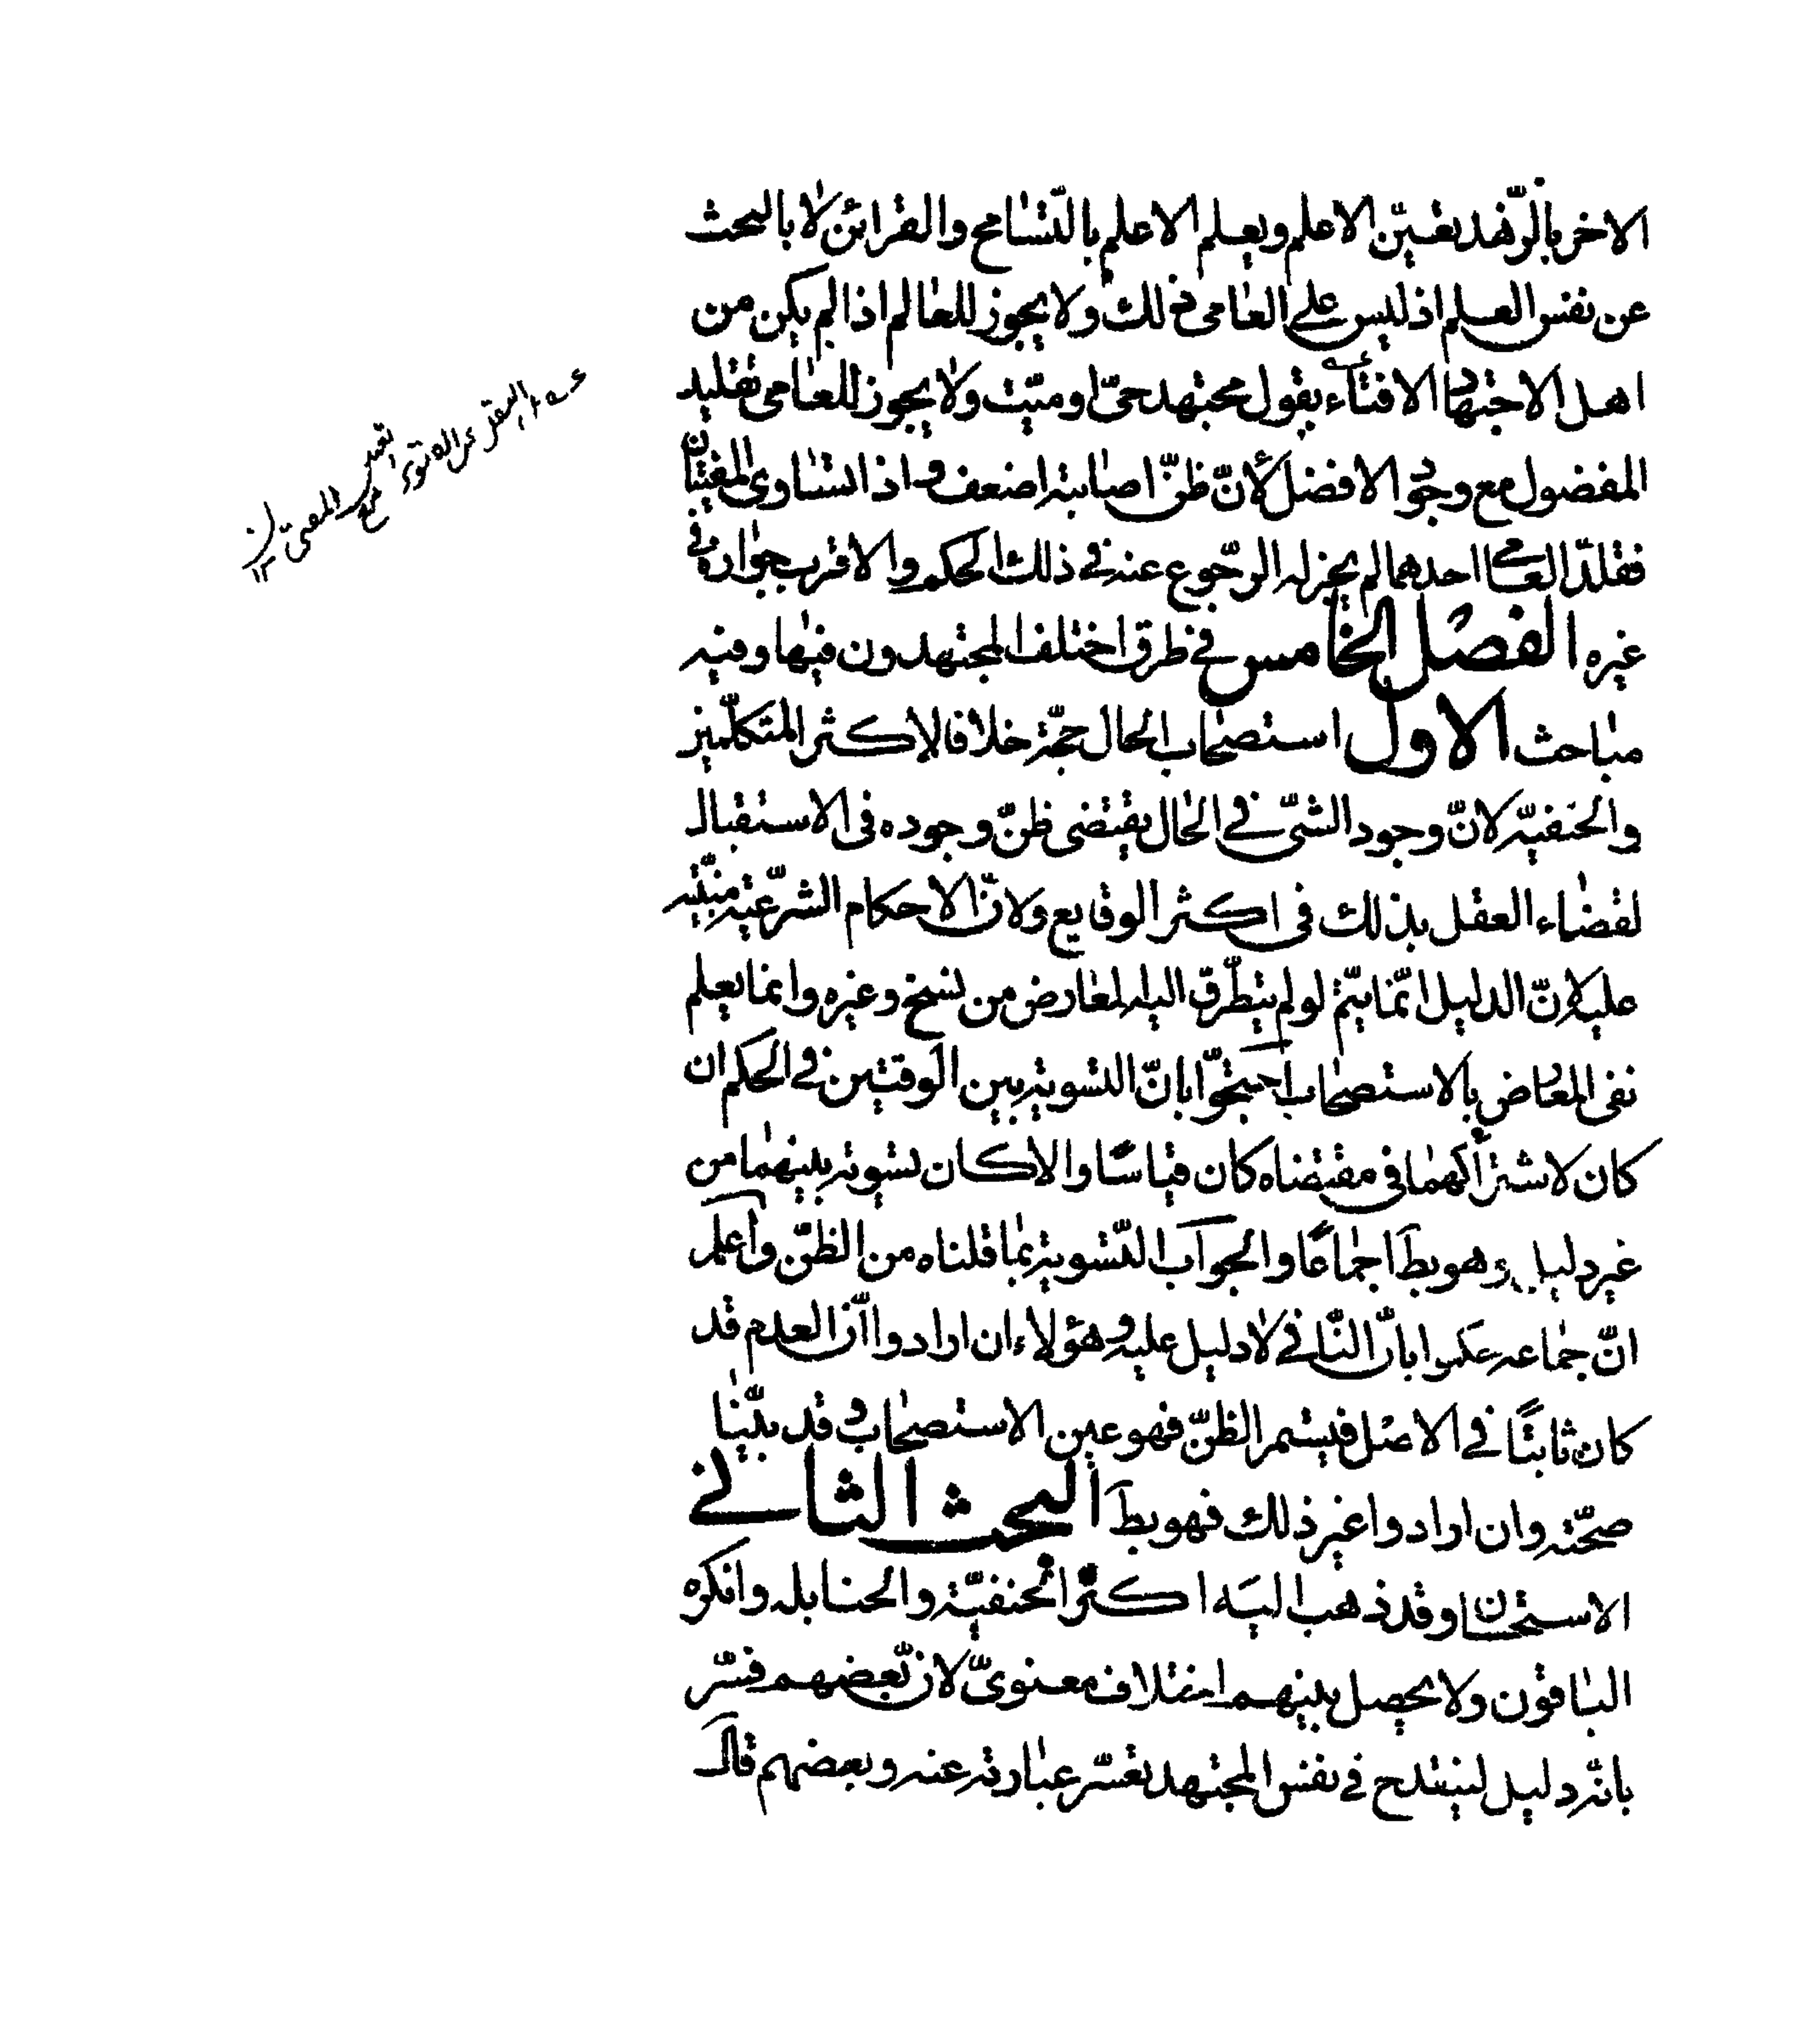 الاخر بالزّهد تعيّن الاعلم ويعلم الاعلم بالتّسامح والقرائن لا بالبحث
عن نفس العلم اذ ليس على العامى ذلك ولا يجوز للعالم اذا لم يكن من
اهل الاجتهاد الافتاء بقول مجتهد حىّ او ميّت ولا يجوز للعامى تقليد
المفضول مع وجود الافضل لأنّ ظنّ اصابته اضعف واذا تساوى المفتيان
فقلّد العامى احدهما لم يجز له الرّجوع عنه فى ذلك الحكم والاقرب جوازه فى
غيره الفصل الخامس فى طرق اختلف المجتهدون فيها وفيه
مباحث الاول استصحاب الحال حجّة خلافا لاكثر المتكلّمين
والحنفيّه لانّ وجود الشىّ فى الحال يقتضى ظنّ وجوده فى الاستقبال
لقضاء العقل بذلك فى اكثر الوقايع ولانّ الاحكام الشرّعيّه مبنيّه
عليه لانّ الدليل انّما يتمّ لو لم يتطرّق اليه المعارض من نسخ وغيره وانما يعلم
نفى المعارض بالاستصحاب احتجّوا بانّ التسوية بين الوقتين فى الحكم ان
كان لاشتراكهما فى مقتضاه كان قياسًا والا كان تسوية بينهما من
غير دليل وهو بط اجماعًا والجواب التّسوية بما قلناه من الظنّ واعلم
انّ جماعه عكسوا بانّ النّافى لا دليل عليه وهؤلاء ان ارادوا انّ العدم قد
كان ثابتًا فى الاصل فيستمر الظنّ فهو عين الاستصحاب وقد بيّنا
صحّته وان ارادوا غير ذلك فهو بط البحث الثانى
الاستحسان وقد ذهب اليه اكثر الحنفيّة والحنابله وانكره
الباقون ولا يحصل بينهم اختلاف معنوىّ لانّ بعضهم فسّر
بانّه دليل ينقدح فى نفس المجتهد تعسّر عبارته عنه وبعضهم قال